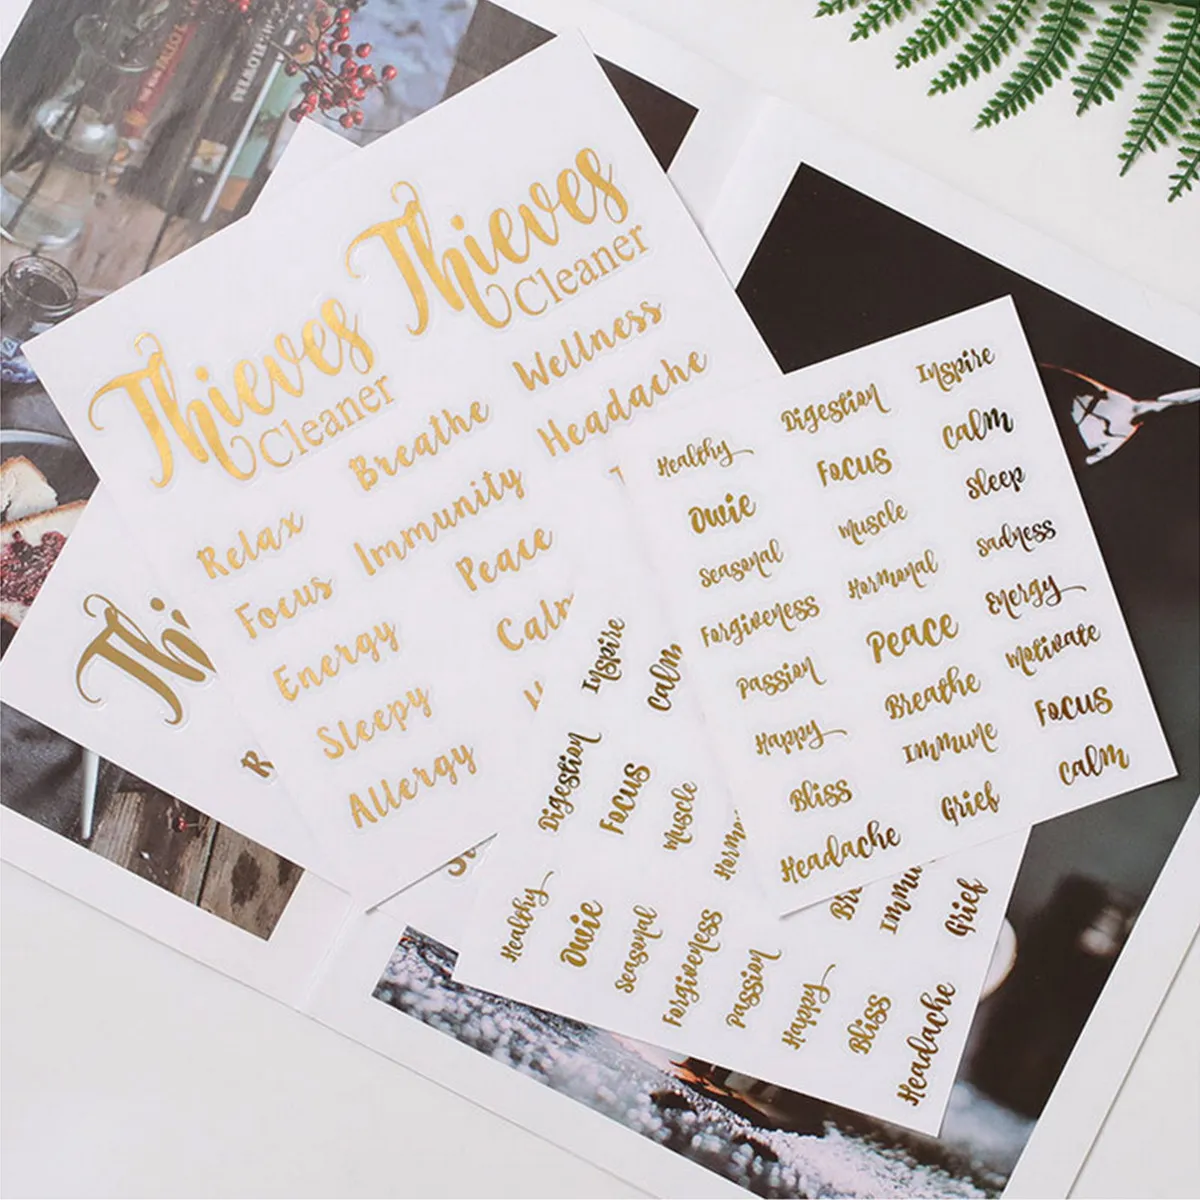 Thieves
Cleaner
Thieves
Cleaner
Wellness
Breathe
Headache
Relax
Immunity
Focus
Peace
Energy
Calm
Sleepy
Allergy
Thi
R
Inspire
Digestion
calm
Healthy
Focus
sleep
Owie
muscle
sadness
seasonal
Hormonal
Energy
Forgiveness
Peace
Motivate
passion
Breathe
Focus
Happy
Immune
calm
Bliss
Grief
Headache
Inspire
calm
Digestion
Focus
muscle
Horm
Bre
Immu
Grief
Healthy
Owie
seasonal
Forgiveness
passion
Happy
Bliss
Headache